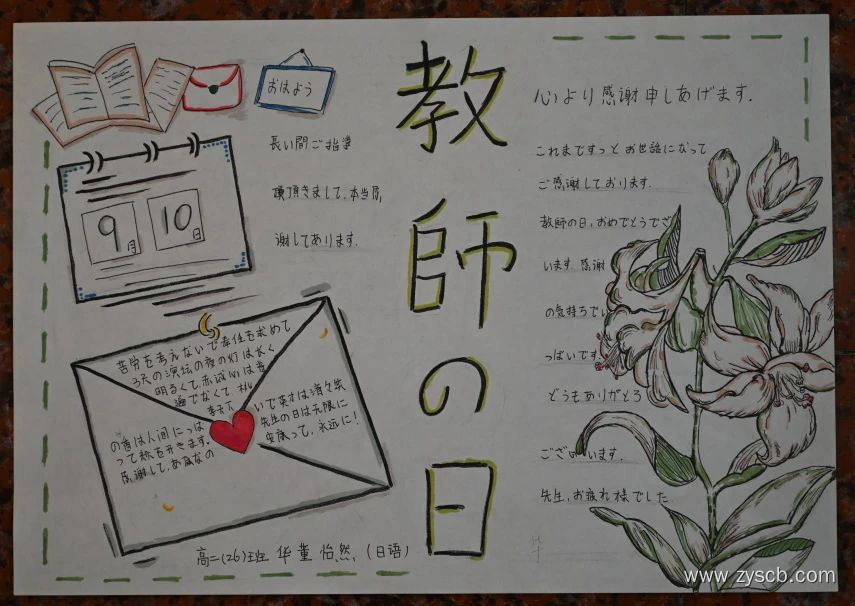 教師の日
おはよう
9月
10日
長い間ご指導
頂頂きまして、本当感
謝してあります.
心より感謝申しあげます.
これまでずっとお世話になって
ご感謝しております.
教師の日,おめでとうでご
います 感謝
の気持ちでい
っぱいです.
どうもありがとう
ございます.
先生,お疲れ様でした
苦労を考えないで奉仕を求めて
3天の演坛の夜の灯は长く
明るくて,赤诚心は普
遍でなくて
いで英才は済々楽
先生の日は无限に
って,永远に!
の香は人间にっぱ
って秋を开きます.
感谢して,あなたの
高二(26)班 华董怡然 (日语)
www.zyscb.com